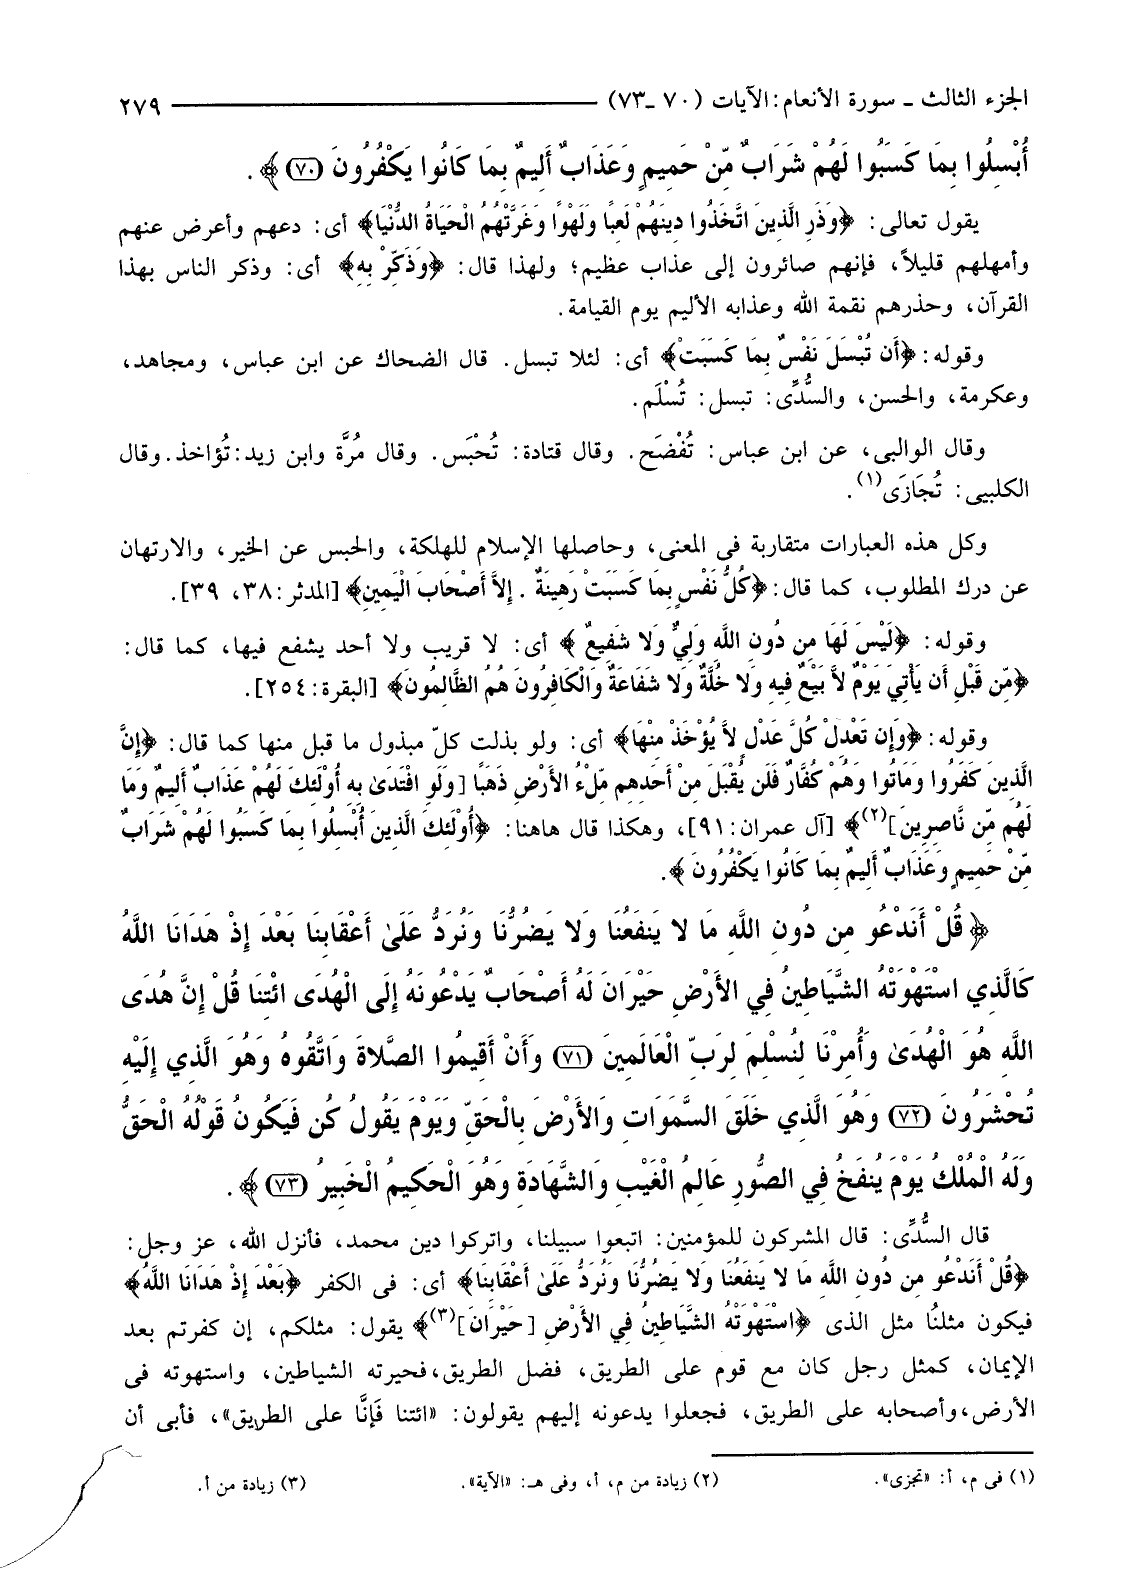 الجزء الثالث ـ سورة الأنعام: الآيات (٧٠ ـ٧٣) ٢٧٩
أُبْسِلُوا بِمَا كَسَبُوا لَهُمْ شَرَابٌ مِّنْ حَمِيمٍ وَعَذَابٌ أَلِيمٌ بِمَا كَانُوا يَكْفُرُونَ (٧٠) ﴾ .
يقول تعالى: ﴿وَذَرِ الَّذِينَ اتَّخَذُوا دِينَهُمْ لَعِبًا وَلَهْوًا وَغَرَّتْهُمُ الْحَيَاةُ الدُّنْيَا﴾ أى: دعهم وأعرض عنهم
وأمهلهم قليلاً، فإنهم صائرون إلى عذاب عظيم؛ ولهذا قال: ﴿وَذَكِّرْ بِهِ﴾ أى: وذكر الناس بهذا
القرآن، وحذرهم نقمة الله وعذابه الأليم يوم القيامة.
وقوله: ﴿أَن تُبْسَلَ نَفْسٌ بِمَا كَسَبَتْ﴾ أى: لئلا تبسل. قال الضحاك عن ابن عباس، ومجاهد،
وعكرمة، والحسن، والسُّدِّى: تبسل: تُسْلَم.
وقال الوالبى، عن ابن عباس: تُفْضَح. وقال قتادة: تُحْبَس. وقال مُرَّة وابن زيد:تُؤاخذ.وقال
الكلبيى: تُجَازَى(١).
وكل هذه العبارات متقاربة فى المعنى، وحاصلها الإسلام للهلكة، والحبس عن الخير، والارتهان
عن درك المطلوب، كما قال: ﴿كُلُّ نَفْسٍ بِمَا كَسَبَتْ رَهِينَةٌ . إِلاَّ أَصْحَابَ الْيَمِينِ﴾ [المدثر:٣٨، ٣٩].
وقوله: ﴿لَيْسَ لَهَا مِن دُونِ اللَّهِ وَلِيٌّ وَلا شَفِيعٌ ﴾ أى: لا قريب ولا أحد يشفع فيها، كما قال:
﴿مِّن قَبْلِ أَن يَأْتِيَ يَوْمٌ لاَّ بَيْعٌ فِيهِ وَلا خُلَّةٌ وَلا شَفَاعَةٌ وَالْكَافِرُونَ هُمُ الظَّالِمُونَ﴾ [البقرة:٢٥٤].
وقوله: ﴿وَإِن تَعْدِلْ كُلَّ عَدْلٍ لاَّ يُؤْخَذْ مِنْهَا﴾ أى: ولو بذلت كلّ مبذول ما قبل منها كما قال: ﴿إِنَّ
الَّذِينَ كَفَرُوا وَمَاتُوا وَهُمْ كُفَّارٌ فَلَن يُقْبَلَ مِنْ أَحَدِهِم مِّلْءُ الأَرْضِ ذَهَبًا [وَلَوِ افْتَدَىٰ بِهِ أُوْلَئِكَ لَهُمْ عَذَابٌ أَلِيمٌ وَمَا
لَهُم مِّن نَّاصِرِينَ](٢)﴾ [آل عمران:٩١]، وهكذا قال هاهنا: ﴿أُولَئِكَ الَّذِينَ أُبْسِلُوا بِمَا كَسَبُوا لَهُمْ شَرَابٌ
مِّنْ حَمِيمٍ وَعَذَابٌ أَلِيمٌ بِمَا كَانُوا يَكْفُرُونَ ﴾.
﴿ قُلْ أَنَدْعُو مِن دُونِ اللَّهِ مَا لا يَنفَعُنَا وَلا يَضُرُّنَا وَنُرَدُّ عَلَىٰ أَعْقَابِنَا بَعْدَ إِذْ هَدَانَا اللَّهُ
كَالَّذِي اسْتَهْوَتْهُ الشَّيَاطِينُ فِي الأَرْضِ حَيْرَانَ لَهُ أَصْحَابٌ يَدْعُونَهُ إِلَى الْهُدَى ائْتِنَا قُلْ إِنَّ هُدَى
اللَّهِ هُوَ الْهُدَىٰ وَأُمِرْنَا لِنُسْلِمَ لِرَبِّ الْعَالَمِينَ (٧١) وَأَنْ أَقِيمُوا الصَّلاةَ وَاتَّقُوهُ وَهُوَ الَّذِي إِلَيْهِ
تُحْشَرُونَ (٧٢) وَهُوَ الَّذِي خَلَقَ السَّمَوَاتِ وَالأَرْضَ بِالْحَقِّ وَيَوْمَ يَقُولُ كُن فَيَكُونُ قَوْلُهُ الْحَقُّ
وَلَهُ الْمُلْكُ يَوْمَ يُنفَخُ فِي الصُّورِ عَالِمُ الْغَيْبِ وَالشَّهَادَةِ وَهُوَ الْحَكِيمُ الْخَبِيرُ (٧٣) ﴾ .
قال السُّدِّى: قال المشركون للمؤمنين: اتبعوا سبيلنا، واتركوا دين محمد، فأنزل الله، عز وجل:
﴿قُلْ أَنَدْعُو مِن دُونِ اللَّهِ مَا لا يَنفَعُنَا وَلا يَضُرُّنَا وَنُرَدُّ عَلَىٰ أَعْقَابِنَا﴾ أى: فى الكفر ﴿بَعْدَ إِذْ هَدَانَا اللَّهُ﴾
فيكون مثلنُا مثل الذى ﴿اسْتَهْوَتْهُ الشَّيَاطِينُ فِي الأَرْضِ [حَيْرَانَ](٣)﴾ يقول: مثلكم، إن كفرتم بعد
الإيمان، كمثل رجل كان مع قوم على الطريق، فضل الطريق،فحيرته الشياطين، واستهوته فى
الأرض،وأصحابه على الطريق، فجعلوا يدعونه إليهم يقولون: «ائتنا فَإِنَّا على الطريق»، فأبى أن
(١) فى م، أ: «تجزى».
(٢) زيادة من م، أ، وفى هـ: «الآية».
(٣) زيادة من أ.